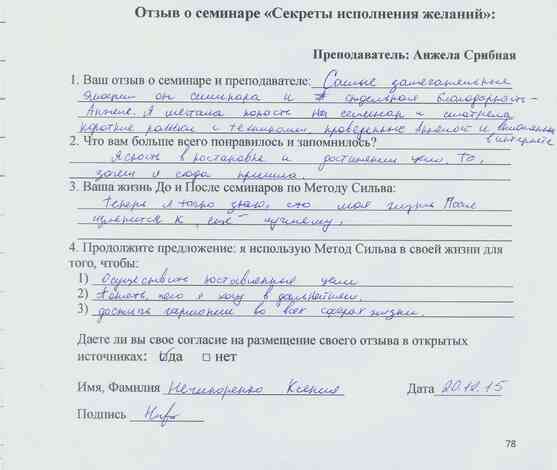 Отзыв о семинаре «Секреты исполнения желаний»:
Преподаватель: Анжела Срибная
1. Ваш отзыв о семинаре и преподавателе: Самые замечательные
эмоции от семинара и отдельная благодарность
Анжеле. Я мечтала попасть на семинар и смотрела
короткие ролики с техниками, проверенные временем и
в интернете
2. Что вам больше всего понравилось и запомнилось?
Ясность в постановке и достижении цели. То,
зачем я сюда пришла.
3. Ваша жизнь До и После семинаров по Методу Сильва:
Теперь я точно знаю, что моя жизнь После
изменится к ещё лучшему.
4. Продолжите предложение: я использую Метод Сильва в своей жизни для
того, чтобы:
1) Осуществить поставленные цели
2) понять, чего я хочу в дальнейшем.
3) достичь гармонии во всех сферах жизни.
Даете ли вы свое согласие на размещение своего отзыва в открытых
источниках: да □ нет
Имя, Фамилия Нечипоренко Ксения Дата 20.12.15
Подпись
78